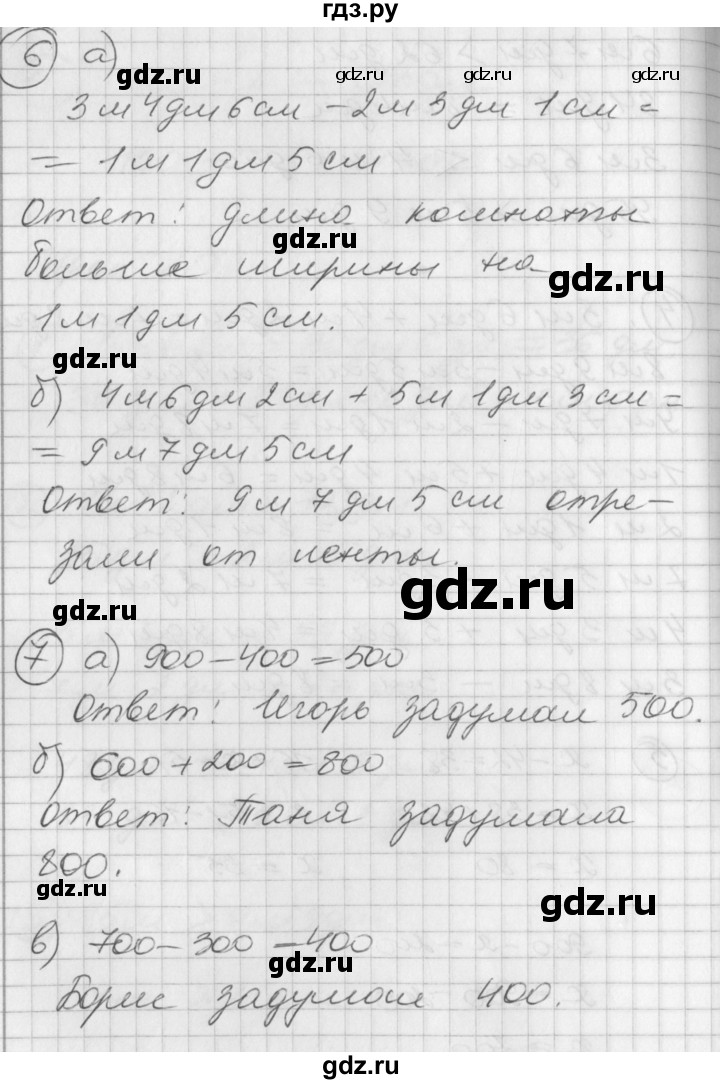 гдз.ру
6 а)
gdz.ru gdz.ru gdz.ru
3м 4дм 6см - 2м 3дм 1см =
= 1м 1дм 5см
Ответ: длина комнаты
gdz.ru
больше ширины на
gdz.ru
1м 1дм 5см.
gdz.ru
б) 4м 6дм 2см + 5м 1дм 3см =
= 9м 7дм 5см
Ответ: 9м 7дм 5см отре-
зали от ленты.
gdz.ru
gdz.ru
7 а) 900 - 400 = 500
Ответ: Игорь задумал 500.
б) 600 + 200 = 800
Ответ: Таня задумала
800.
gdz.ru
gdz.ru
в) 700 - 300 = 400
gdz.ru
Борис задумал 400.
gdz.ru